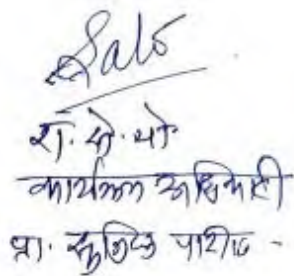 रा. से. यो
कार्यक्रम अधिकारी
प्रा. सुनिल पाटील -